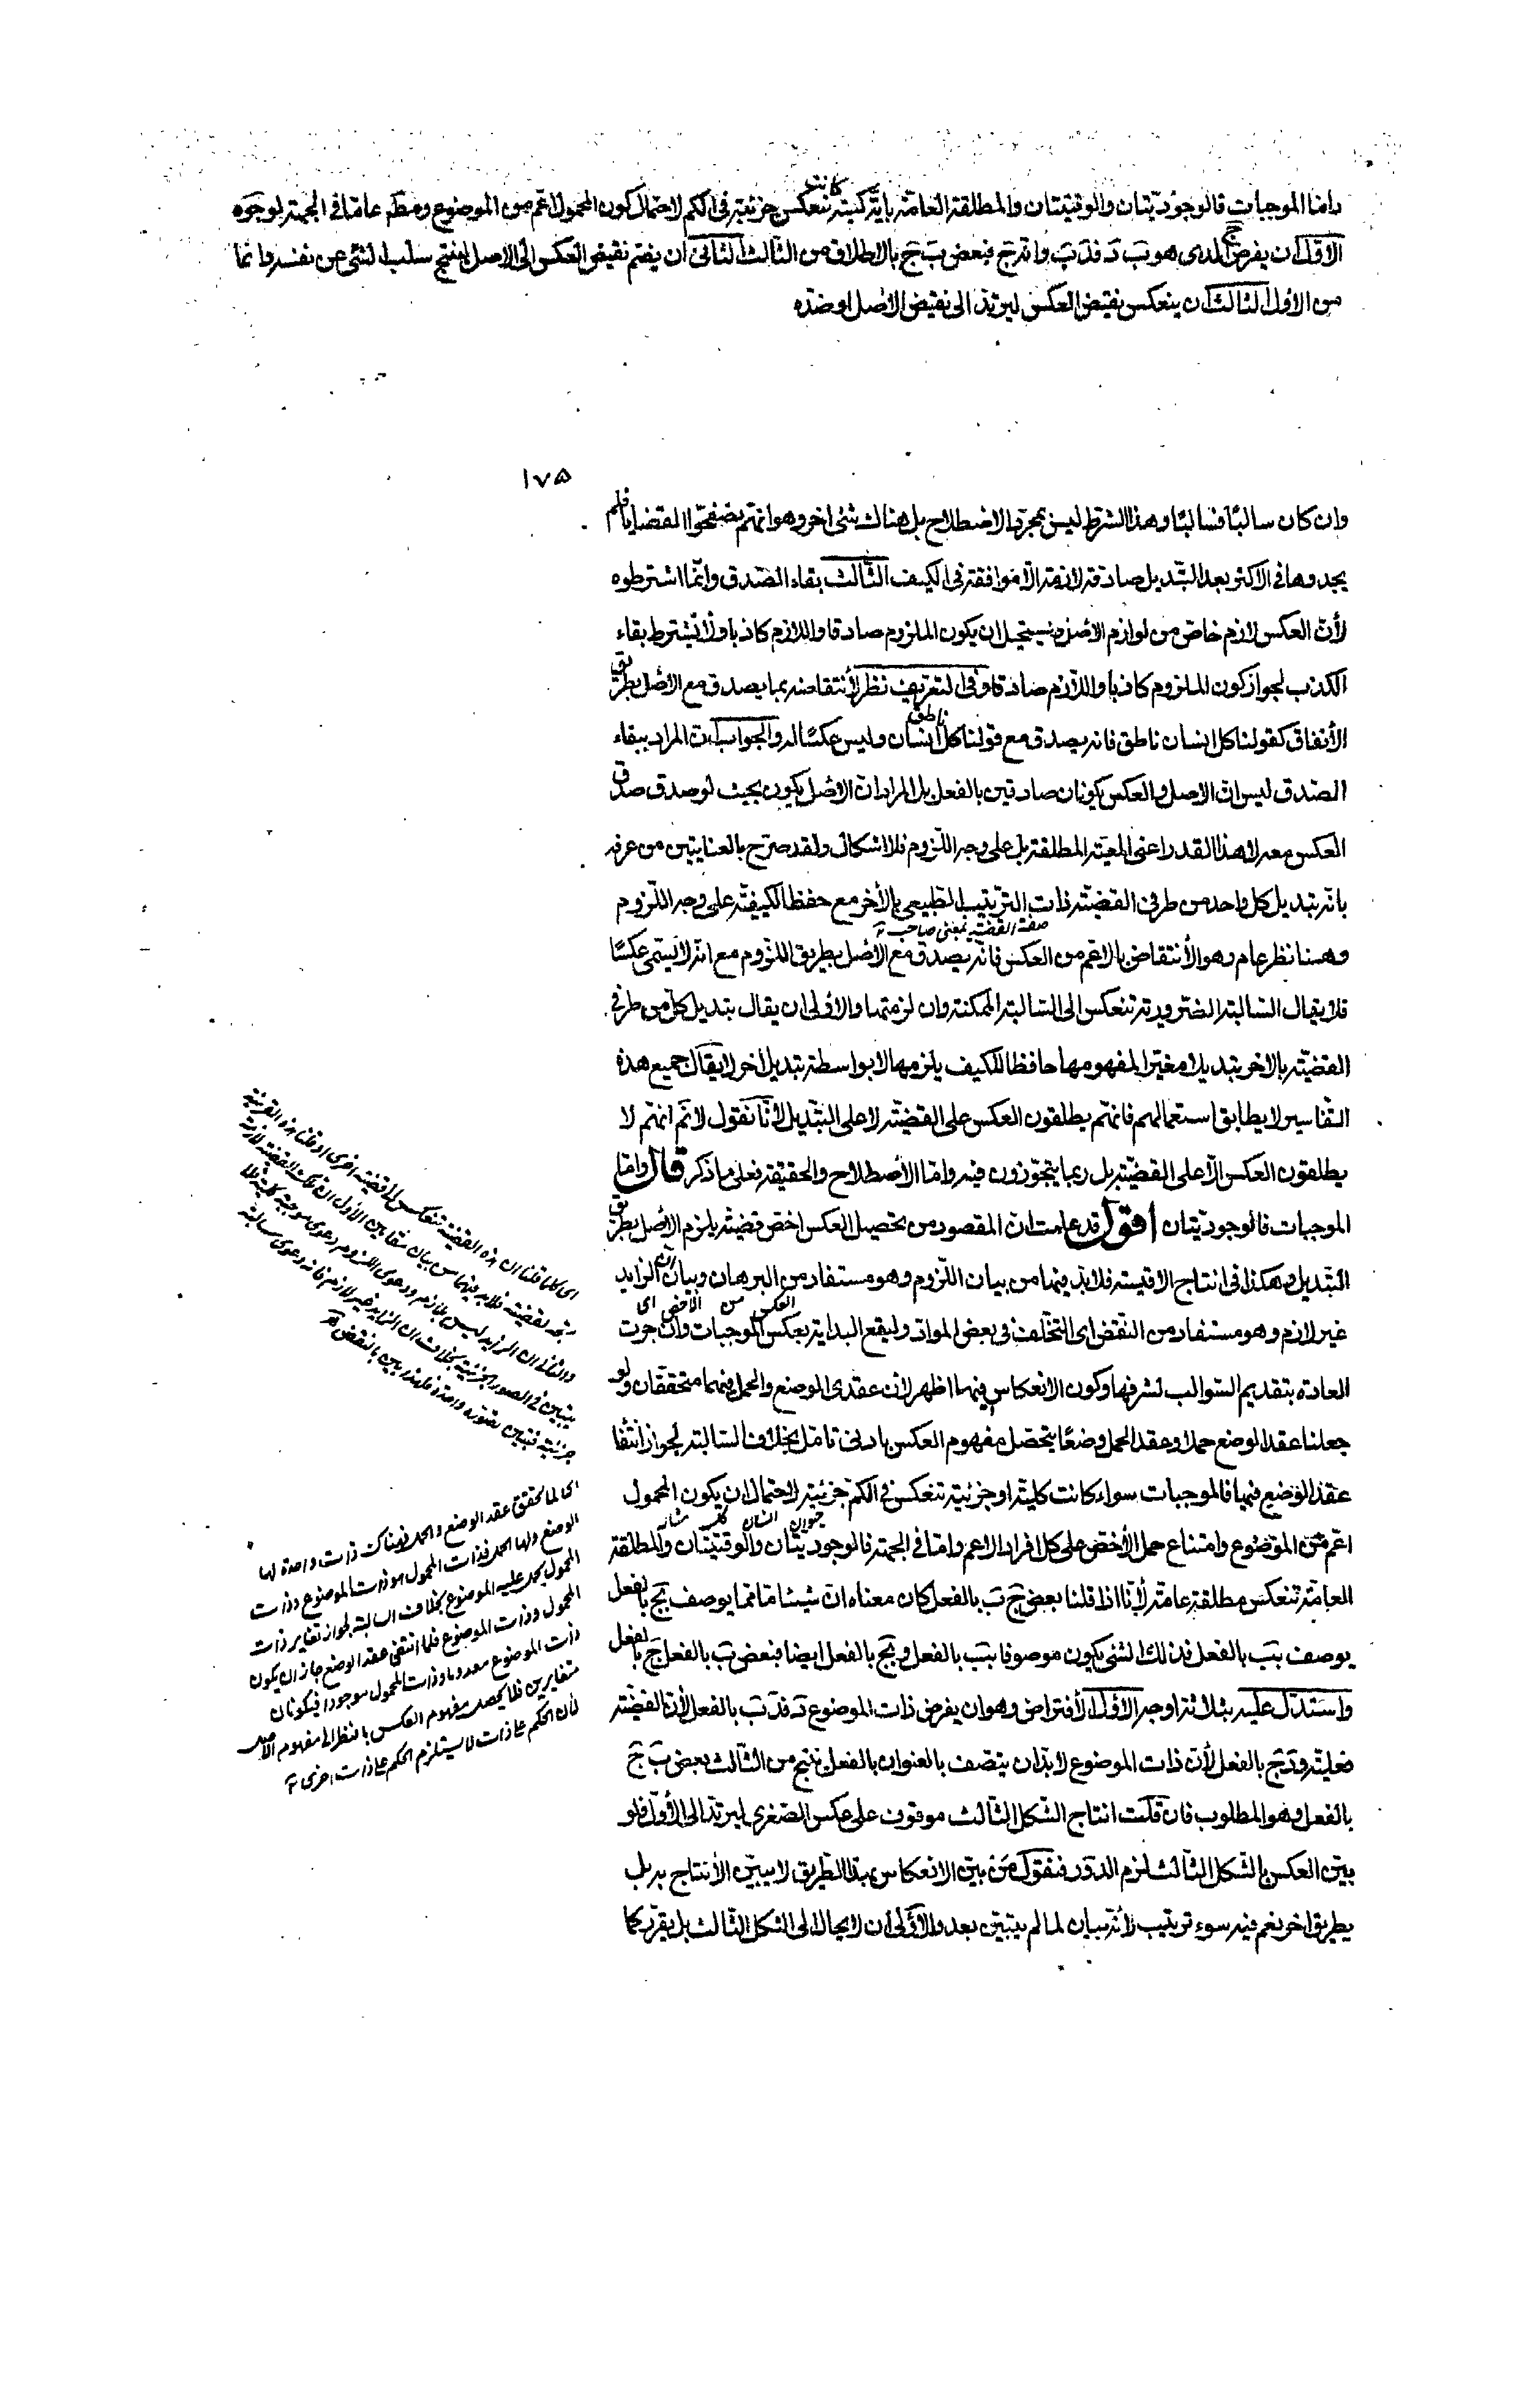 واما الموجبات فالوجوديتان والوقتيتان والمطلقة العامة باية كمية كانت تنعكس جزئية في الكم لاحتمال كون المحمول اعم من الموضوع ومطلقة عامة في الجهة لوجوه
الاول ان يفرض ج الذى هو ب د فدب ودج فبعض ب ج بالاطلاق من الثالث الثانى ان يضم نقيض العكس الى الاصل لينتج سلب الشئ عن نفسه دائما
من الاول الثالث ان ينعكس نقيض العكس ليرتد الى نقيض الاصل او ضده
١٧۵
وان كان سالبًا فسالبًا وهذا الشرط ليس بمجرد الاصطلاح بل هناك شئ اخر وهو انهم تصفحوا القضايا فلم
يجدوها في الاكثر بعد التبديل صادقة لازمة الا موافقة في الكيف الثالث بقاء الصدق وانما اشترطوه
لأن العكس لازم خاص من لوازم الاصل ويستحيل ان يكون الملزوم صادقا واللازم كاذبا ولا يشترط بقاء
الكذب لجواز كون الملزوم كاذبا واللازم صادقا وفي التعريف نظر لأنتقاضه بما يصدق مع الاصل بطريق
الأتفاق كقولنا كل انسان ناطق فانه يصدق مع قولنا كل ناطق انسان وليس عكسًا له والجواب ان المراد ببقاء
الصدق ليس ان الاصل والعكس يكونان صادقين بالفعل بل المراد ان الاصل يكون بحيث لو صدق صدق
العكس معه لا هذا القدر اعنى المعية المطلقة بل على وجه اللزوم فلا اشكال ولقد صرح بالعنايتين من عرفه
بانه تبديل كل واحد من طرفى القضية ذات الترتيب الطبيعى بالأخر مع حفظ الكيفية على وجه اللزوم
صفة القضية بمعنى صاحب
وههنا نظر عام وهو الأنتقاض بالاعم من العكس فانه يصدق مع الاصل بطريق اللزوم مع انه لا يسمى عكسًا
فلا يقال السالبة الضرورية تنعكس الى السالبة الممكنة وان لزمتها والاولى ان يقال تبديل كل من طرفى
القضية بالاخر تبديلا مغيرا لمفهومها حافظا للكيف يلزمها لا بواسطة تبديل اخر لا يقال جميع هذه
التفاسير لا يطابق استعمالهم فانهم يطلقون العكس على القضية لا على التبديل لأنا نقول لا نم انهم لا
يطلقون العكس الا على القضية بل ربما يتجوزون فيه واما الأصطلاح والحقيقة فعلى ما ذكر قال واما
الموجبات فالوجوديتان اقول قد علمت ان المقصود من تحصيل العكس اخص قضية يلزم الاصل بطريق
التبديل وهكذا في انتاج الاقيسة فلا بد فيهما من بيان اللزوم وهو مستفاد من البرهان وبيان ان الزايد
غير لازم وهو مستفاد من النقض اى التخلف في بعض المواد وليقع البداية بعكس الموجبات وان جرت
العادة بتقديم السوالب لشرفها وكون الانعكاس فيها اظهر لأن عقدى الوضع والحمل فيهما متحققان ولو
جعلنا عقد الوضع حملا وعقد الحمل وضعًا يتحصل مفهوم العكس بادنى تامل بخلاف السالبة لجواز انتفا
عقد الوضع فيها فالموجبات سواء كانت كلية او جزئية تنعكس في الكم جزئية لاحتمال ان يكون المحمول
اعم من الموضوع وامتناع حمل الأخص على كل افراد الاعم واما في الجهة فالوجوديتان والوقتيتان والمطلقة
العامة تنعكس مطلقة عامة لأنا اذا قلنا بعض ج ب بالفعل كان معناه ان شيئا ما مما يوصف بج بالفعل
يوصف بب بالفعل فذلك الشئ يكون موصوفا بب بالفعل وبج بالفعل ايضا فبعض ب بالفعل ج بالفعل
واستدل عليه بثلاثة اوجه الاول الأفتراض وهو ان يفرض ذات الموضوع د فد ب بالفعل لأن القضية
فعلية ود ج بالفعل لأن ذات الموضوع لا بد ان يتصف بالعنوان بالفعل ينتج من الثالث بعض ب ج
بالفعل وهو المطلوب فان قلت انتاج الشكل الثالث موقوف على عكس الصغرى ليرتد الى الأول فلو
بين العكس بالشكل الثالث لزم الدور فنقول من بين الانعكاس بهذا الطريق لا يبين الأنتاج به بل
بطريق اخر نعم فيه سوء ترتيب لأنه بيان لما لم يتبين بعد والاولى ان لا يحال الى الشكل الثالث بل يقرر كما
اى لما تحقق عقد الوضع والحمل فهناك ذات واحدة لها
الوضع ولها الحمل فذات المحمول هو ذات الموضوع وذات
المحمول يحمل عليه الموضوع بخلاف السالبة لجواز تغاير ذات
المحمول وذات الموضوع فلما انتفى عقد الوضع جاز ان يكون
ذات الموضوع معدوما وذات المحمول موجودا فيكونان
متغايرين فلا يحصل مفهوم العكس بالنظر الى مفهوم الاصل
لأن الحكم على ذات لا يستلزم الحكم على ذات اخرى